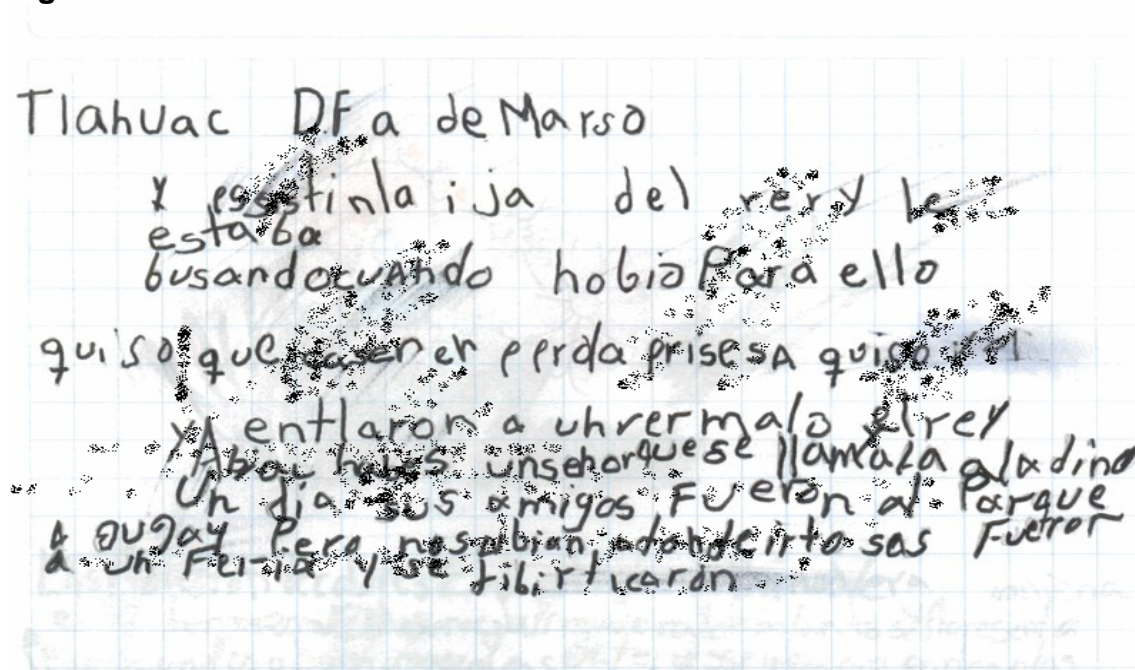 Tlahuac D.F a de Marso
y esstinla ija del rery le
estaba
busandocuando hobio Para ello
quiso que er perda prisesa
y entlaron a uhrermalo elrey
unseñorquese llamaza aladino
Un dia sus amigos Fueron al Parque
a gugay Pero nosabian adondeirto sas Fueror
a un Feiria y se tibirticaron